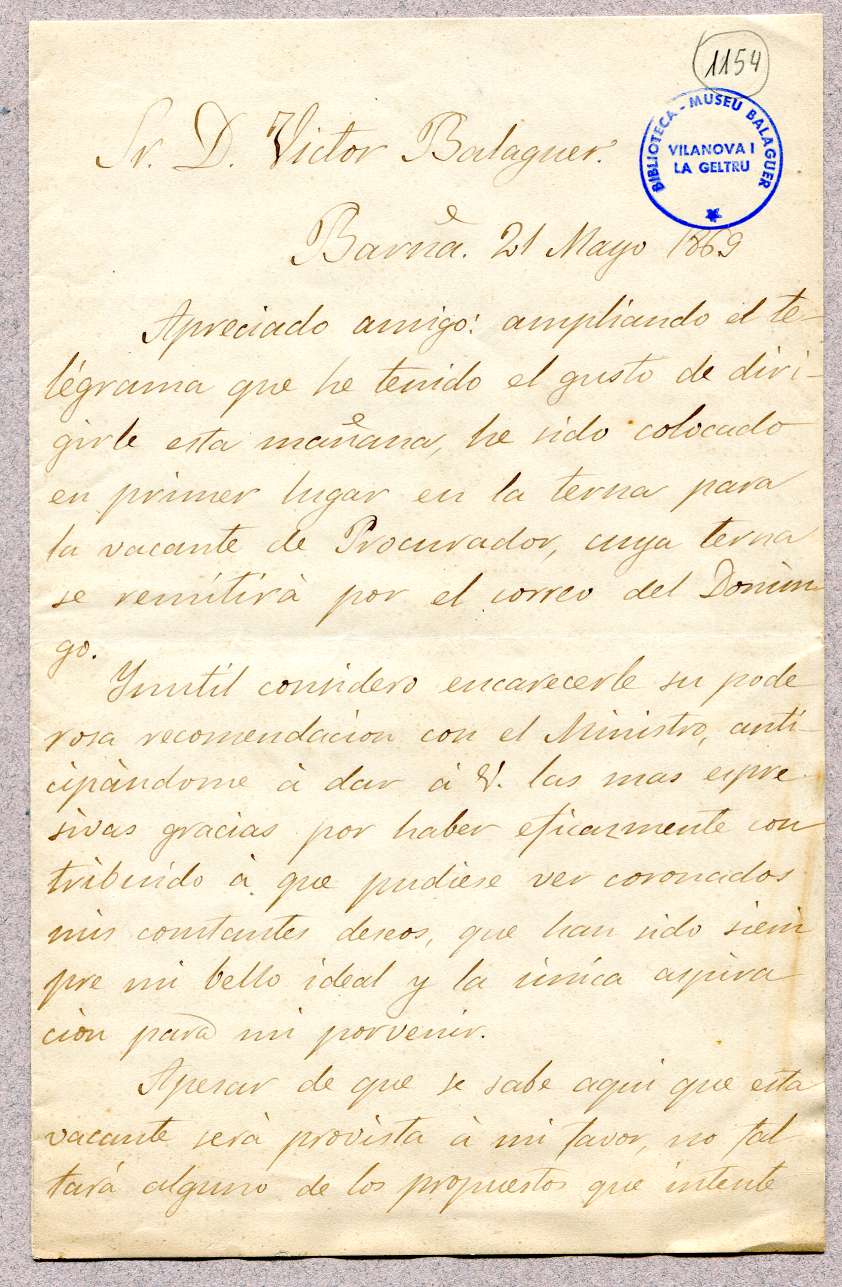 1154
BIBLIOTECA - MUSEU BALAGUER
VILANOVA I
LA GELTRU
Sr. D. Victor Balaguer.
Barña. 21 Mayo 1869
Apreciado amigo: ampliando el te-
légrama que he tenido el gusto de diri-
girle esta mañana, he sido colocado
en primer lugar en la terna para
la vacante de Procurador, cuya terna
se remitirà por el correo del Domin
go.
Ynutil considero encarecerle su pode
rosa recomendacion con el Ministro, anti-
cipàndome à dar à V. las mas espre
sivas gracias por haber eficazmente con
tribuido à que pudiese ver coronados
mis constantes deseos, que han sido siem
pre mi bello ideal y la ùnica aspira
cion para mi porvenir.
Apesar de que se sabe aqui que esta
vacante serà provista à mi favor, no fal
tará alguno de los propuestos que intente